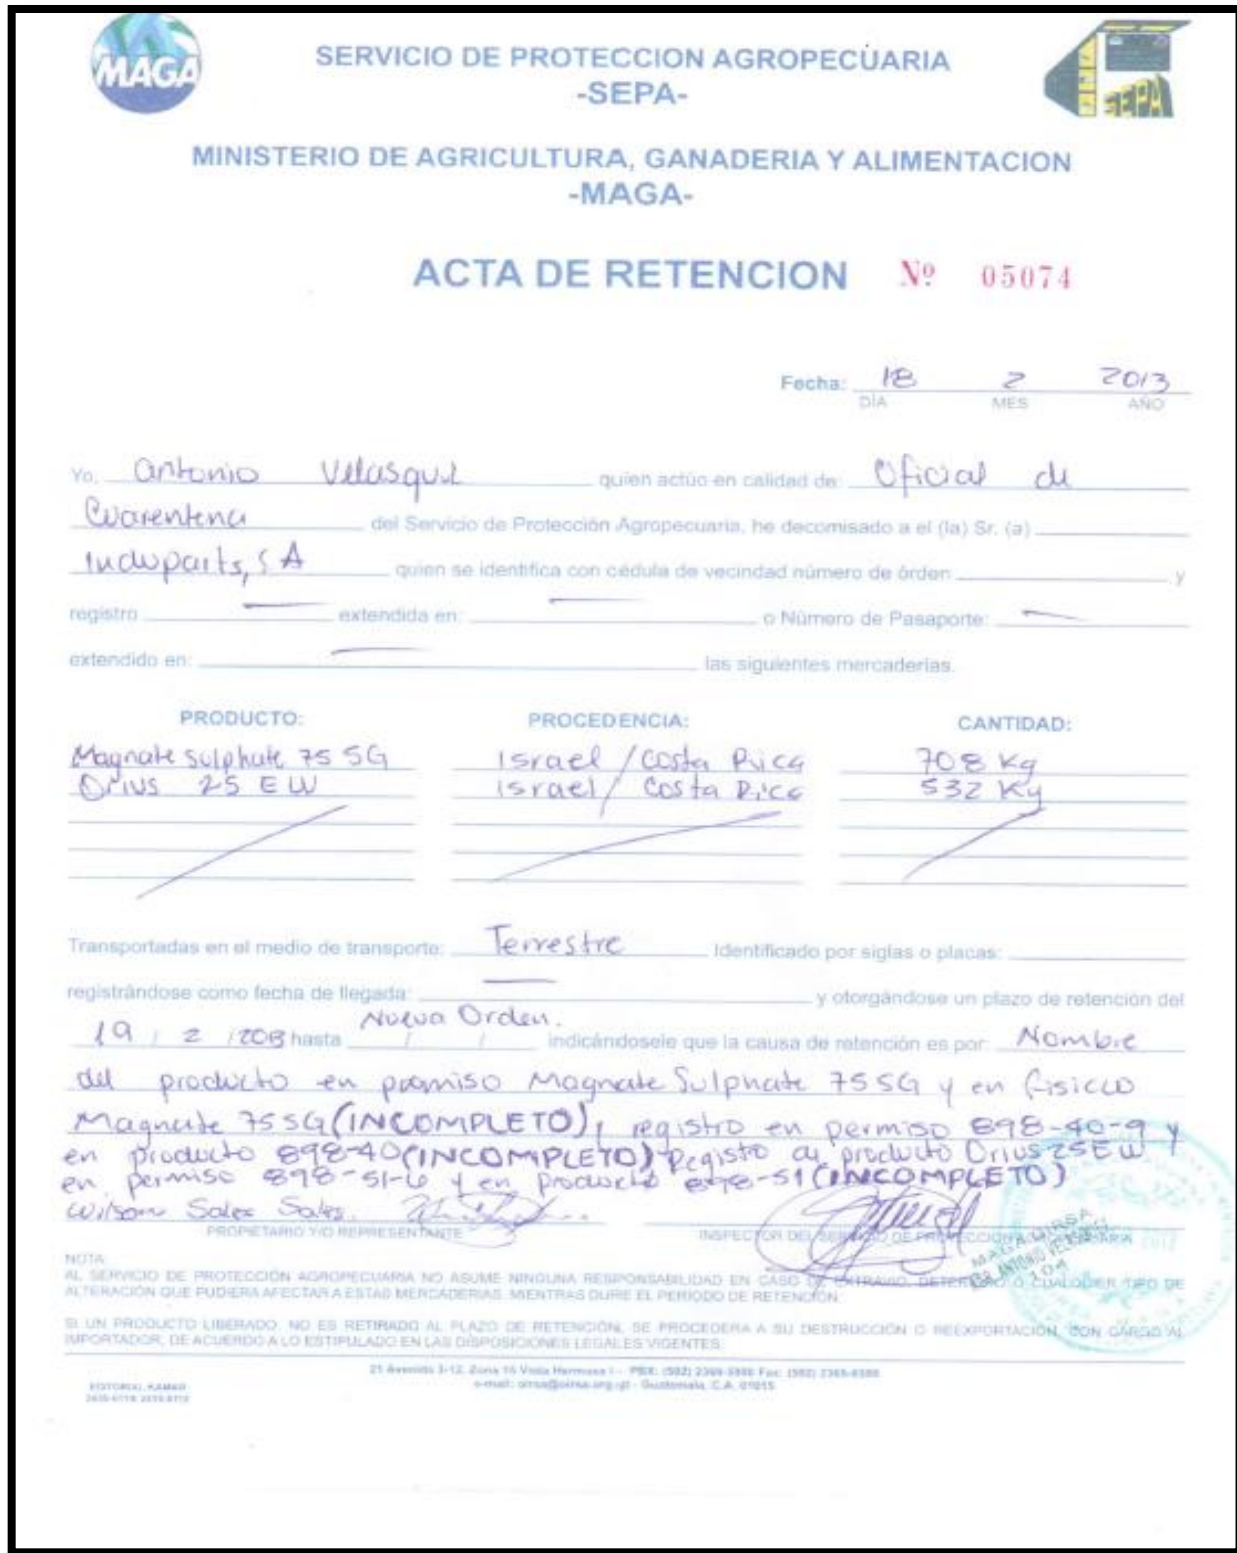 MAGA
SERVICIO DE PROTECCION AGROPECUARIA
-SEPA-
SEPA
MINISTERIO DE AGRICULTURA, GANADERIA Y ALIMENTACION
-MAGA-
ACTA DE RETENCION Nº 05074
Fecha: 18 2 2013
DÍA MES AÑO
Yo, Antonio Velasquez quien actúo en calidad de: Oficial de
Cuarentena del Servicio de Protección Agropecuaria, he decomisado a el (la) Sr. (a)
Induparts, SA quien se identifica con cédula de vecindad número de órden y
registro extendida en: o Número de Pasaporte:
extendido en: las siguientes mercaderias.
PRODUCTO: PROCEDENCIA: CANTIDAD:
Magnate Sulphate 75 SG Israel / Costa Rica 708 Kg
Orius 25 EW Israel / Costa Rica 532 Kg
Transportadas en el medio de transporte: Terrestre Identificado por siglas o placas:
registrándose como fecha de llegada: y otorgándose un plazo de retención del
19 / 2 / 2013 hasta Nueva Orden. / / indicándosele que la causa de retención es por: Nombre
del producto en permiso Magnate Sulphate 75SG y en fisico
Magnate 75SG (INCOMPLETO), registro en permiso 898-40-9 y
en producto 898-40 (INCOMPLETO) Registo de producto Orius 25EW
en permiso 898-51-6 y en producto 898-51 (INCOMPLETO)
Wilson Sales Sales.
PROPIETARIO Y/O REPRESENTANTE INSPECTOR DEL SERVICIO DE PROTECCION AGROPECUARIA
MAGA OIRSA
NOTA:
AL SERVICIO DE PROTECCIÓN AGROPECUARIA NO ASUME NINGUNA RESPONSABILIDAD EN CASO DE EXTRAVIO, DETERIORO O CUALQUIER TIPO DE
ALTERACIÓN QUE PUDIERA AFECTAR A ESTAS MERCADERIAS, MIENTRAS DURE EL PERIODO DE RETENCIÓN.
SI UN PRODUCTO LIBERADO, NO ES RETIRADO AL PLAZO DE RETENCIÓN, SE PROCEDERA A SU DESTRUCCIÓN O REEXPORTACIÓN, CON CARGO AL
IMPORTADOR, DE ACUERDO A LO ESTIPULADO EN LAS DISPOSICIONES LEGALES VIGENTES.
21 Avenida 3-12, Zona 15 Vista Hermosa I -- PBX: (502)
Guatemala, C.A. 01015
EDITORIAL KAMAR